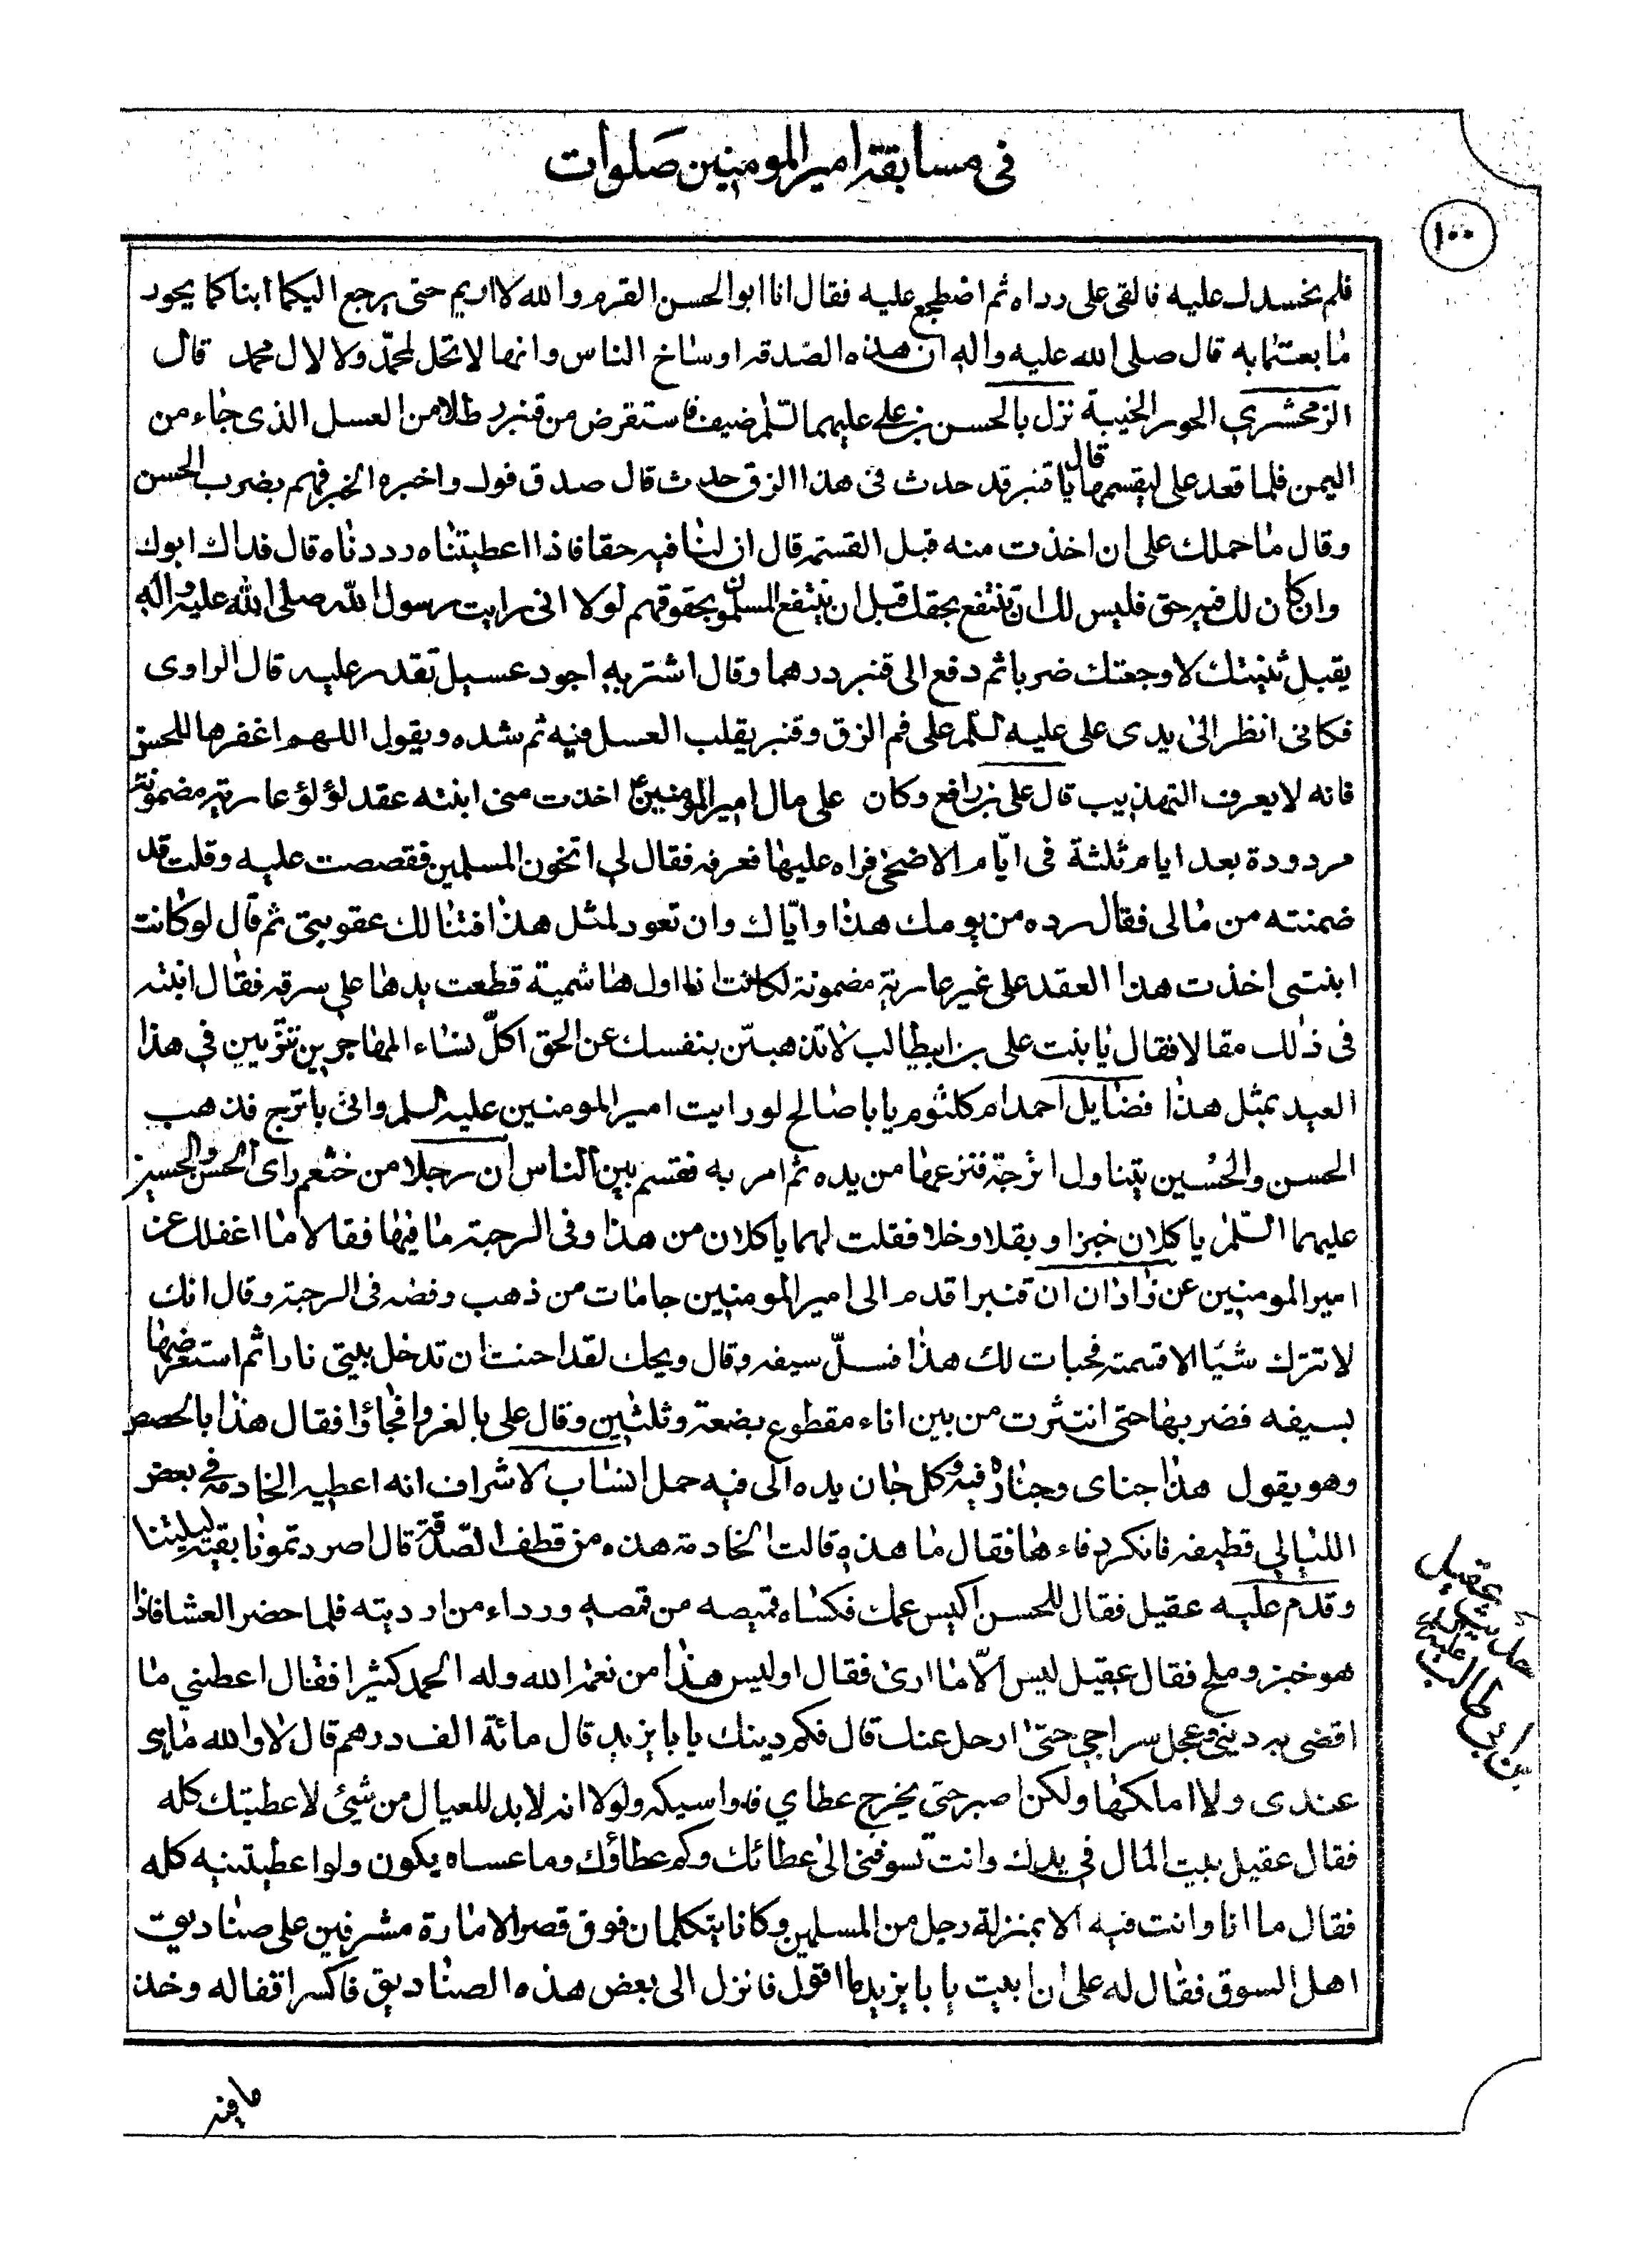 فى مسابقة امير المومنين صلوات
١٠٠
فلم نحسدك عليه فالقى على رداه ثم اضطجع عليه فقال انا ابو الحسن القرم والله لا اريم حتى يرجع اليكما ابناكما بحور
ما بعثتما به قال صلى الله عليه واله ان هذه الصدقة اوساخ الناس وانها لا تحل لمحمد ولا لال محمد قال
الزمخشري نزل بالحسن بن على عليهما السلم ضيف فاستقرض من قنبر رطلا من العسل الذى جاء من
اليمن فلما قعد على ليقسمها قال يا قنبر قد حدث فى هذا الزق حدث قال صدق فوك واخبره الخبر فهم بضرب الحسن
وقال ما حملك على ان اخذت منه قبل القسمة قال ان لنا فيه حقا فاذا اعطيتناه رددناه قال فداك ابوك
وان كان لك فيه حق فليس لك ان تنتفع بحقك قبل ان ينتفع المسلمون بحقوقهم لولا انى رايت رسول الله صلى الله عليه واله
يقبل ثنيتك لاوجعتك ضربا ثم دفع الى قنبر درهما وقال اشتر به اجود عسل تقدر عليه قال الراوى
فكانى انظر الى يدى على عليه السلم على فم الزق وقنبر يقلب العسل فيه ثم شده ويقول اللهم اغفرها للحسن
فانه لا يعرف التهذيب قال على بن رافع وكان على مال امير المومنين ع اخذت منى ابنته عقد لؤلؤ عارية مضمونة
مردودة بعد ايام ثلثة فى ايام الاضحى فراه عليها فعرفه فقال لى اتخون المسلمين فقصصت عليه وقلت قد
ضمنته من مالى فقال رده من يومك هذا واياك وان تعود لمثل هذا فتنالك عقوبتى ثم قال لو كانت
ابنتى اخذت هذا العقد على غير عارية مضمونة لكانت اذا اول هاشمية قطعت يدها على سرقة فقال ابنته
فى ذلك مقالا فقال يا بنت على بن ابيطالب لا تذهبن بنفسك عن الحق اكل نساء المهاجرين تتزين فى هذا
العيد بمثل هذا فضايل احمد ام كلثوم يا با صالح لو رايت امير المومنين عليه السلم واتى باترج فذهب
الحسن والحسين يتناول اترجة فنزعها من يده ثم امر به فقسم بين الناس ان رجلا من خثعم راى الحسن والحسين
عليهما السلم ياكلان خبزا وبقلا وخلا فقلت لهما ياكلان من هذا وفى الرحبة ما فيها فقالا ما اغفلك عن
امير المومنين عن زاذان ان قنبرا قدم الى امير المومنين جامات من ذهب وفضه فى الرحبة وقال انك
لا تترك شيئا الا قسمته فخبات لك هذا فسل سيفه وقال ويحك لقد احببت ان تدخل بيتى نارا ثم استعرضها
بسيفه فضربها حتى انتثرت من بين اناء مقطوع بضعة وثلثين وقال على بالغرفا فجاؤا فقال هذا بالحصص
وهو يقول هذا جناى وخياره فيه وكل جان يده الى فيه جمل انساب الاشراف انه اعطيه الخادمة فى بعض
الليالى قطيفه فانكر دفاءها فقال ما هذه قالت الخادمة هذه من قطف الصدقة قال اصردتمونا بقية ليلتنا
وقدم عليه عقيل فقال للحسن اكس عمك فكساه قميصه من قمصه ورداء من ارديته فلما حضر العشا فاذا
هو خبز وملح فقال عقيل ليس الا ما ارى فقال او ليس هذا من نعم الله وله الحمد كثيرا فقال اعطنى ما
اقضى به دينى وعجل سراحى حتى ارحل عنك قال فكم دينك يا با يزيد قال مائة الف درهم قال لا والله ما هى
عندى ولا املكها ولكن اصبر حتى يخرج عطاي فاواسيكه ولولا انه لا بد للعيال من شيئ لاعطيتك كله
فقال عقيل بيت المال فى يدك وانت تسوفنى الى عطائك وكم عطاؤك وما عساه يكون ولو اعطيتنيه كله
فقال ما انا وانت فيه الا بمنزلة رجل من المسلمين وكانا يتكلمان فوق قصر الامارة مشرفين على صناديق
اهل السوق فقال له على ان ابيت يا با يزيد ما اقول فانزل الى بعض هذه الصناديق فاكسر اقفاله وخذ
عقيل
بن ابى طالب
ما فيه